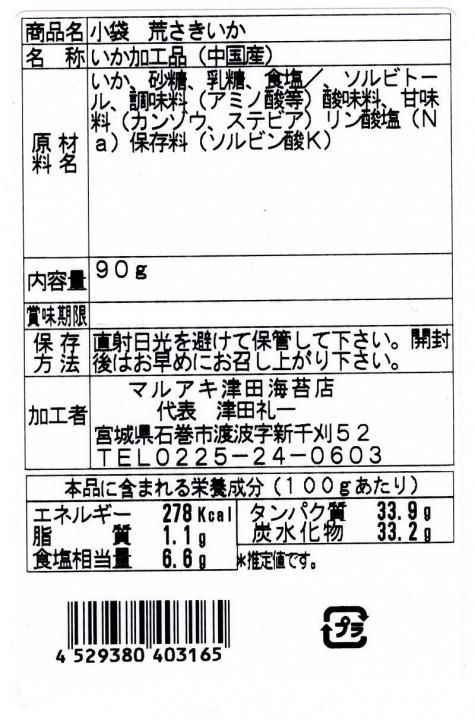 商品名 小袋 荒さきいか
名 称 いか加工品（中国産）
原材料名 いか、砂糖、乳糖、食塩／、ソルビトー
ル、調味料（アミノ酸等）酸味料、甘味
料（カンゾウ、ステビア）リン酸塩（N
a）保存料（ソルビン酸K）
内容量 90g
賞味期限
保存方法 直射日光を避けて保管して下さい。開封
後はお早めにお召し上がり下さい。
加工者 マルアキ津田海苔店
代表 津田礼一
宮城県石巻市渡波字新千刈52
TEL0225-24-0603
本品に含まれる栄養成分（100gあたり）
エネルギー 278Kcal タンパク質 33.9g
脂 質 1.1g 炭水化物 33.2g
食塩相当量 6.6g *推定値です。
4 529380 403165
プラ